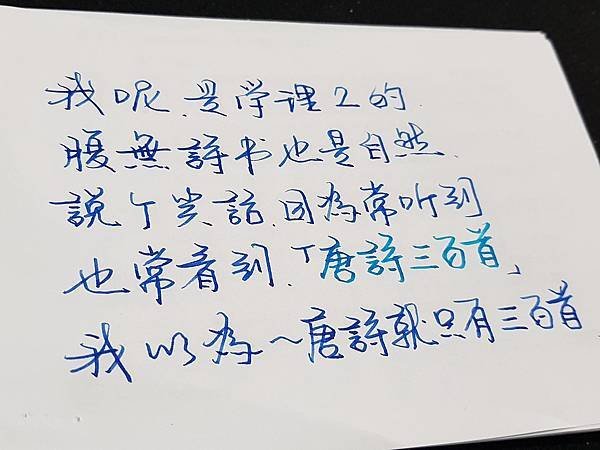 我呢,是学理工的.
腹無詩书也是自然.
説个笑話,因為常听到
也常看到,「唐詩三百首」
我以為~唐詩就只有三百首